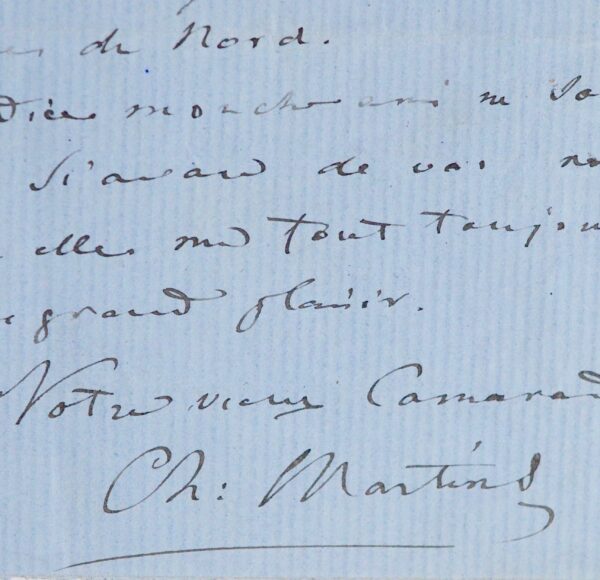 du Nord.
Adieu mon cher ami ne so
si avare de vos
elles me font toujou
grand plaisir.
Votre vieux Camarad
Ch: Martins